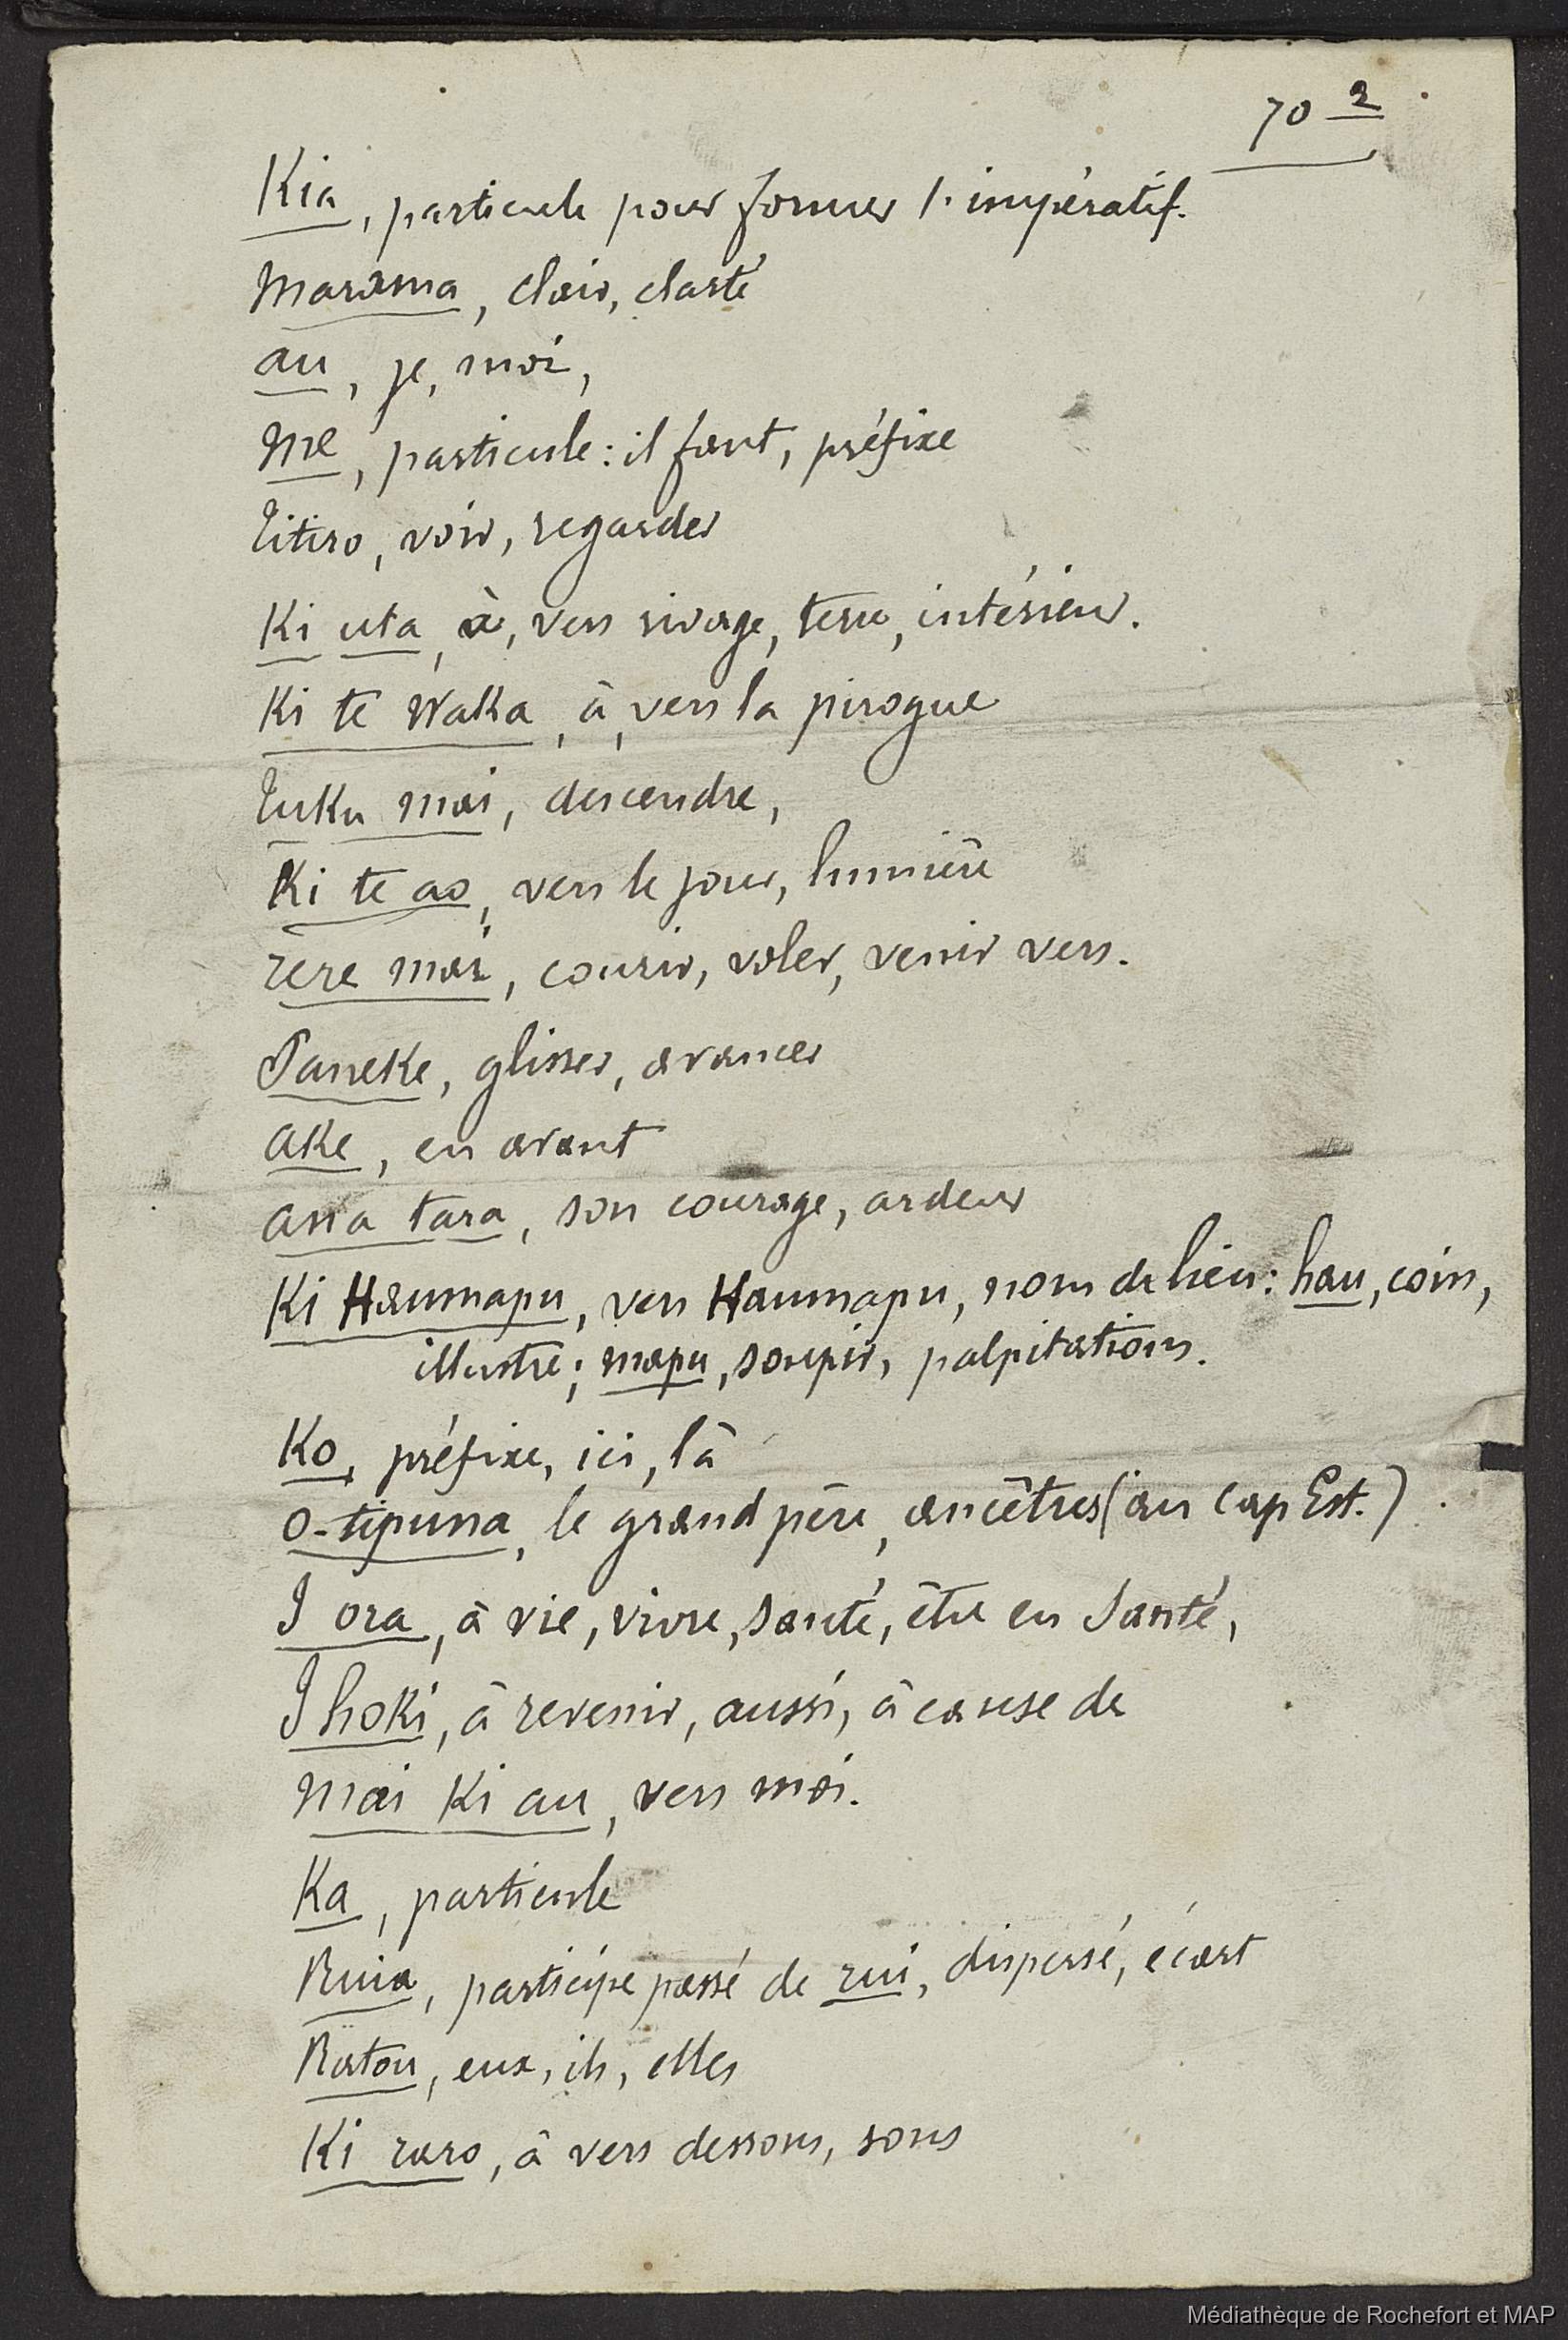 70 2
Kia, particule pour former l'impératif.
Marama, clair, clarté
au, je, moi,
Me, particule : il faut, préfixe
Titiro, voir, regarder
Ki uta, à, vers rivage, terre, intérieur.
Ki te Waka, à, vers la pirogue
Tuku mai, descendre,
Ki te ao, vers le jour, lumière
rere mai, courir, voler, venir vers.
Paneke, glisser, avancer
ake, en avant
ana tara, son courage, ardeur
Ki Haumapu, vers Haumapu, nom de lieu : hau, coin,
illustre ; mapu, soupir, palpitations.
Ko, préfixe, ici, là
O-tipuna, le grand père, ancêtres (au Cap Est.)
I ora, à vie, vivre, santé, être en santé,
I hoki, à revenir, aussi, à cause de
Mai Ki au, vers moi.
Ka, particule
Ruia, participe passé de rui, dispersé, écart
Ratou, eux, ils, elles
Ki raro, à vers dessous, sous
Médiathèque de Rochefort et MAP